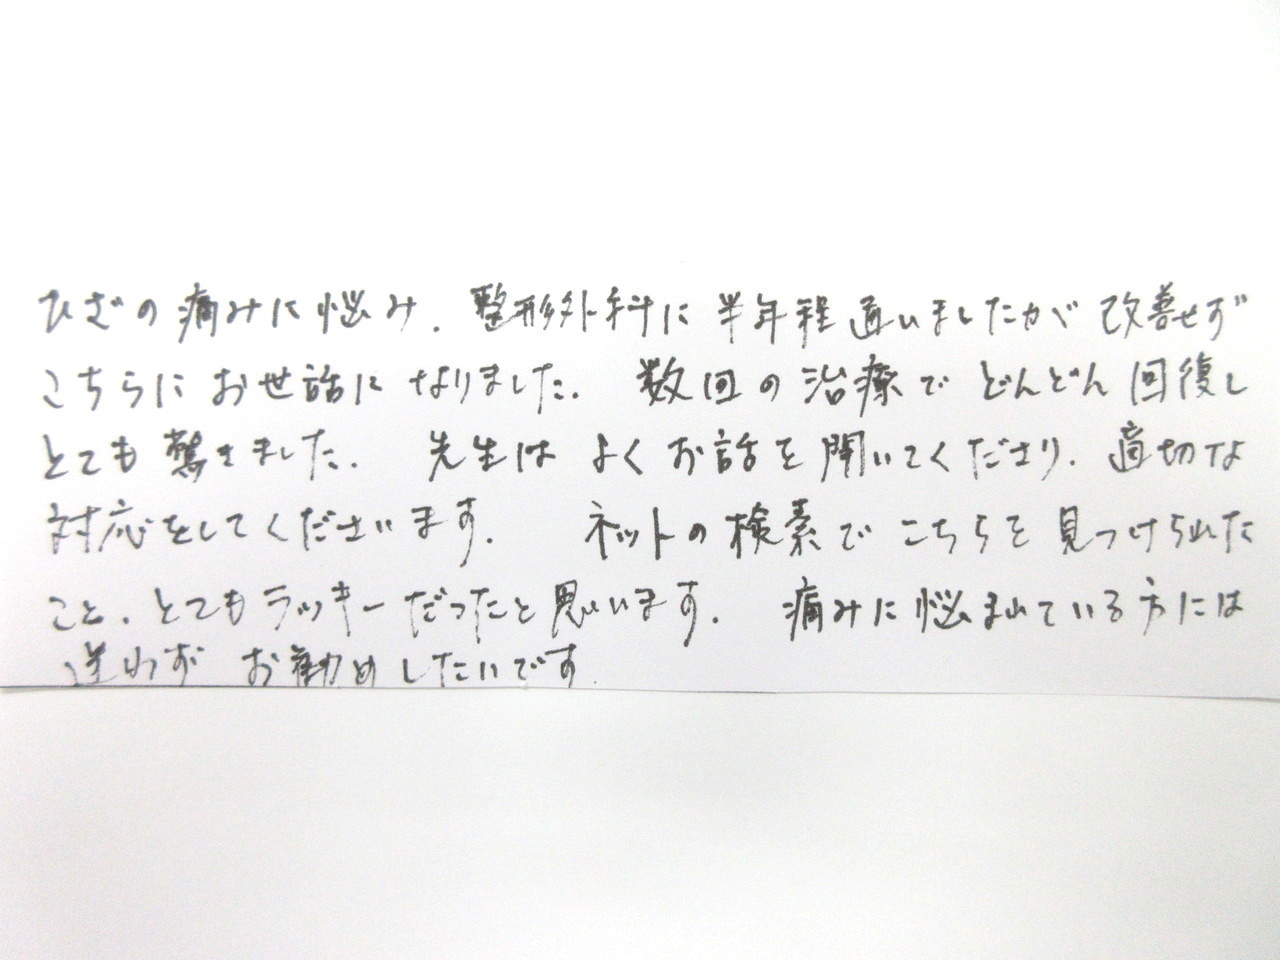 ひざの痛みに悩み、整形外科に半年程通いましたが改善せず
こちらにお世話になりました。数回の治療でどんどん回復し
とても驚きました。先生はよくお話を聞いてくださり、適切な
対応をしてくださいます。ネットの検索でこちらを見つけられた
こと、とてもラッキーだったと思います。痛みに悩まれている方には
迷わずお勧めしたいです。